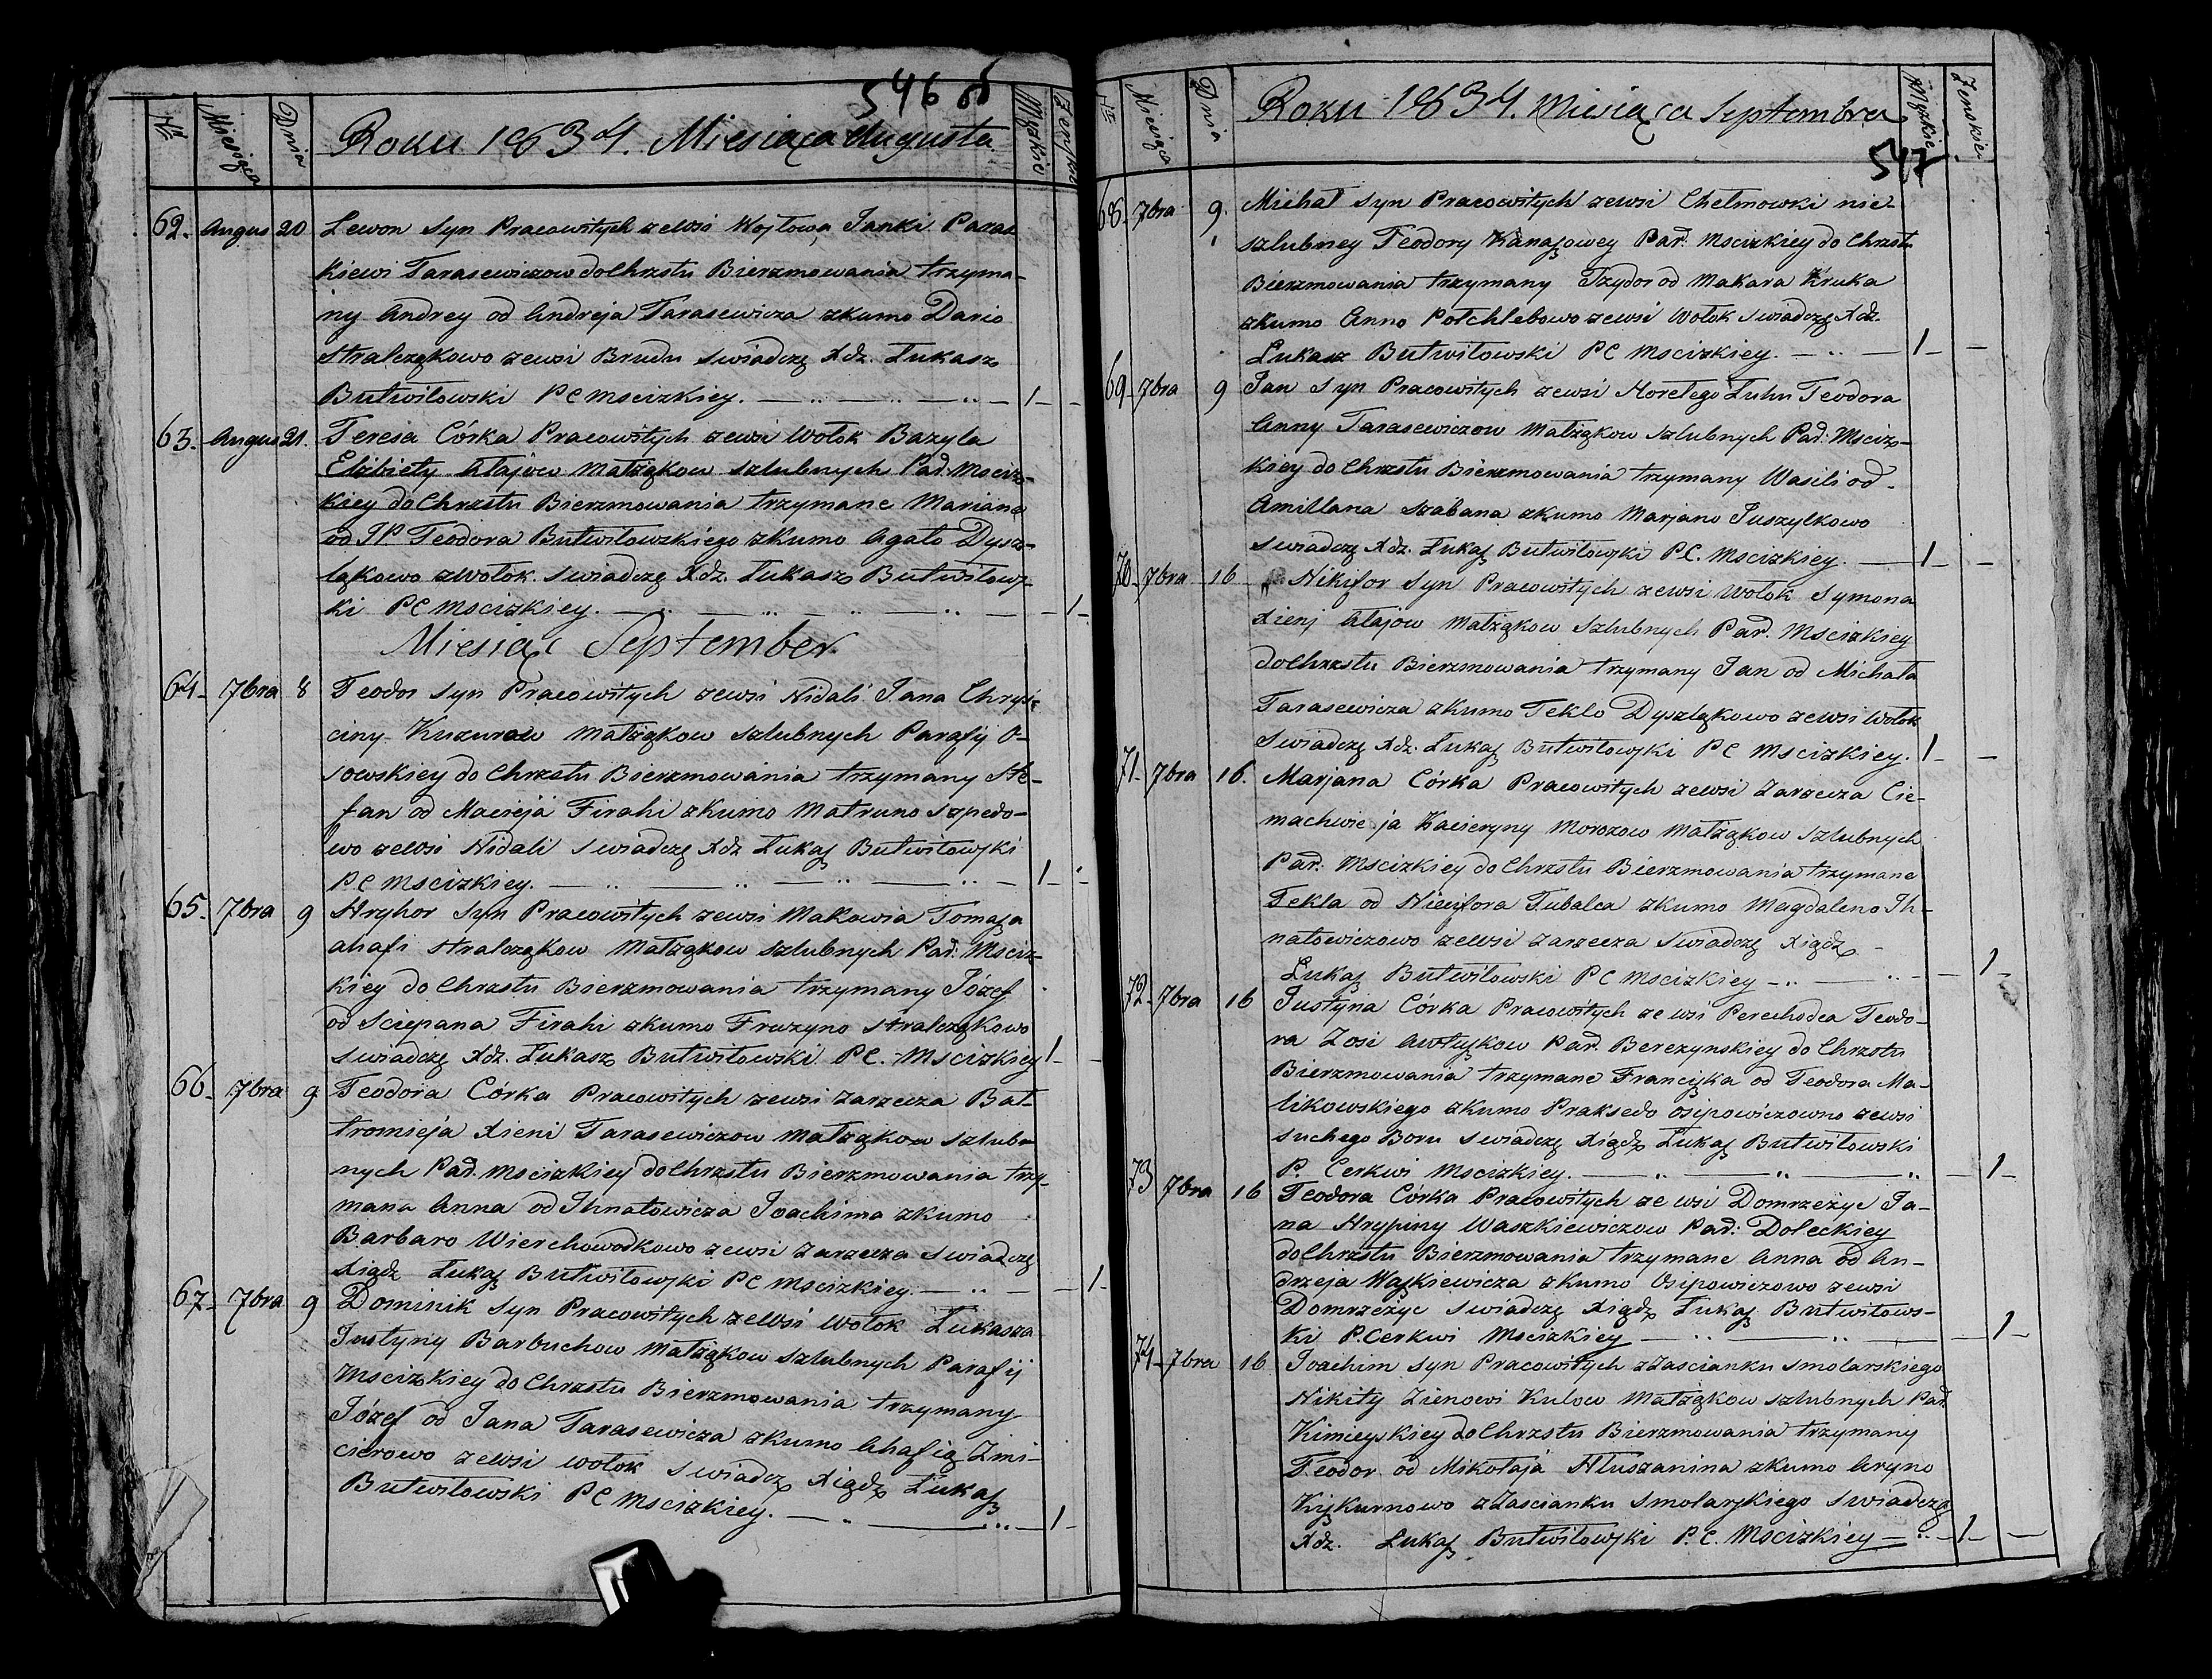 546 об
Nr Miesiąca Dnia Roku 1834. Miesiąca Augusta. Męzkie Zeńskie
62. Augus 20 Lewon Syn Pracowitych zewsi Wojtowa Janki Paras
kiewi Tarasewiczow do Chrzstu Bierzmowania trzyma-
ny Andrey od Andreja Tarasewicza zkumo Dario
Stralczękowo zewsi Brudu Swiadczę Xdz. Łukasz
Butwiłowski PC Mscizkiey. 1
63. Augus 21. Teresia Córka Pracowitych zewsi Wołok Bazyla
Elżbiety Ałajow Małżąkow szlubnych Par. Msciz-
kiey do Chrzstu Bierzmowania trzymane Mariana
od JP Teodora Butwiłowskiego zkumo Agato Dysz-
ląkowo zWołok Swiadczę Xdz. Łukasz Butwiłows-
ki PC Mscizkiey. 1
Miesiąc September.
64 7bra 8 Teodor Syn Pracowitych zewsi Nidali Jana Chryś-
ciny Kuzuraw Małżąkow szlubnych Parafij O-
sowskiey do Chrzstu Bierzmowania trzymany Ste-
fan od Macieja Firahi zkumo Matruno Szpedo-
wo zewsi Nidali Swiadczę Xdz Łukasz Butwiłowski
PC Mscizkiey. 1
65. 7bra 9 Hryhor Syn Pracowitych zewsi Makowia Tomasza
Ahafi Stralczękow Małżąkow szlubnych Par. Msciz-
kiey do Chrzstu Bierzmowania trzymany Józef
od Sciepana Firahi zkumo Fruzyno Stralczękowo
Swiadczę Xdz. Łukasz Butwiłowski PC. Mscizkiey 1
66. 7bra 9 Teodora Córka Pracowitych zewsi Zarzecza Bał-
tromieja Xieni Tarasewiczow Małżąkow szlub-
nych Par. Mscizkiey do Chrzstu Bierzmowania trzy-
mana Anna od Ihnatowicza Joachima zkumo
Barbaro Wierchowodkowo zewsi Zarzecza Swiadczę
Xiądz Łukasz Butwiłowski PC Mscizkiey. 1
67. 7bra 9 Dominik Syn Pracowitych zewsi Wołok Łukasza
Justyny Barbuchow Małżąkow szlubnych Parafij
Mscizkiey do Chrzstu Bierzmowania trzymany
Józef od Jana Tarasewicza zkumo Ahafią Zmi-
cierowo zewsi Wołok Swiadcz Xiądz Łukasz
Butwiłowski PC Mscizkiey. 1
Nr Miesiąca Dnia Roku 1834. Miesiąca Septembra Męzkie Zeńskie
547
68. 7bra 9. Michał Syn Pracowitych zewsi Chelmowki nie-
szlubney Teodory Kanaszowey Par. Mscizkiey do Chrzstu
Bierzmowania trzymany Jzydor od Makara Kruka
zkumo Anno Potchlebowo zewsi Wołok Swiadczę Xdz.
Łukasz Butwiłowski PC Mscizkiey. 1
69. 7bra 9 Jan Syn Pracowitych zewsi Horełego Łuhu Teodora
Anny Tarasewiczow Małżąkow szlubnych Par. Msciz-
kiey do Chrzstu Bierzmowania trzymany Wasili od
Amillana Szabana zkumo Marjano Juszylkowo
Swiadczę Xdz. Łukasz Butwiłowski PC. Mscizkiey. 1
70. 7bra 16 Nikifor Syn Pracowitych zewsi Wołok Symona
Xienj Ałajow Małżąkow szlubnych Par. Mscizkiey
do Chrzstu Bierzmowania trzymany Jan od Michała
Tarasewicza zkumo Teklo Dyszląkowo zewsi Wołok
Swiadczę Xdz. Łukasz Butwiłowski PC Mscizkiey. 1
71. 7bra 16. Marjana Córka Pracowitych zewsi Zarzecza Cie-
machwieja Kacieryny Morozow Małżąkow szlubnych
Par. Mscizkiey do Chrzstu Bierzmowania trzymane
Tekla od Nicifora Tubalca zkumo Magdaleno Ih-
natowiczowo zewsi Zarzecza Swiadczę Xiądz
Łukasz Butwiłowski PC Mscizkiey 1
72. 7bra 16 Justyna Córka Pracowitych zewsi Perechodca Teodo-
ra Zosi Awtuszkow Par. Berezynskiey do Chrzstu
Bierzmowania trzymane Franciszka od Teodora Ma-
likowskiego zkumo Praksedo Osipowiczowno zewsi
Suchego Boru Swiadczę Xiądz Łukasz Butwiłowski
P. Cerkwi Mscizkiey. 1
73 7bra 16 Teodora Córka Pracowitych zewsi Domrzeżyc Ja-
na Hrypiny Waszkiewiczow Par. Doleckiey
do Chrzstu Bierzmowania trzymane Anna od An-
drzeja Waszkiewicza zkumo Osipowiczowo zewsi
Domrzeżyc Swiadczę Xiądz Łukasz Butwiłows-
ki P. Cerkwi Mscizkiey 1
74. 7bra 16 Joachim Syn Pracowitych zZascianku Smolarskiego
Nikity Zienowi Kulow Małżąkow szlubnych Par.
Kimieyskiey do Chrzstu Bierzmowania trzymany
Teodor od Mikołaja Hluszanina zkumo Aryno
Kiszkurnowo zZascianku Smolarskiego Swiadczą
Xdz. Łukasz Butwiłowski P. C. Mscizkiey 1